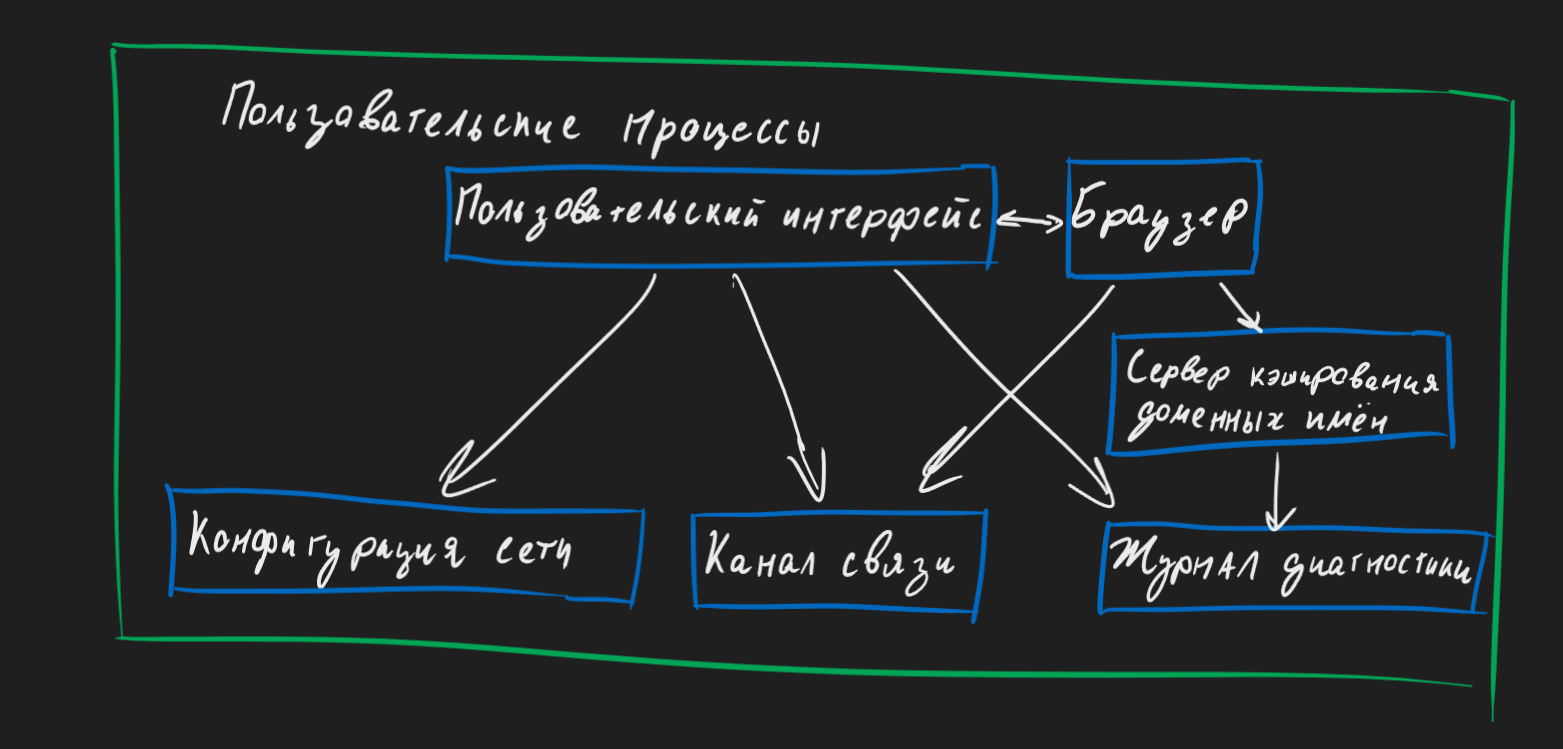 Пользовательские процессы
Пользовательский интерфейс
Браузер
Сервер кэширования
доменных имён
Конфигурация сети
Канал связи
Журнал диагностики